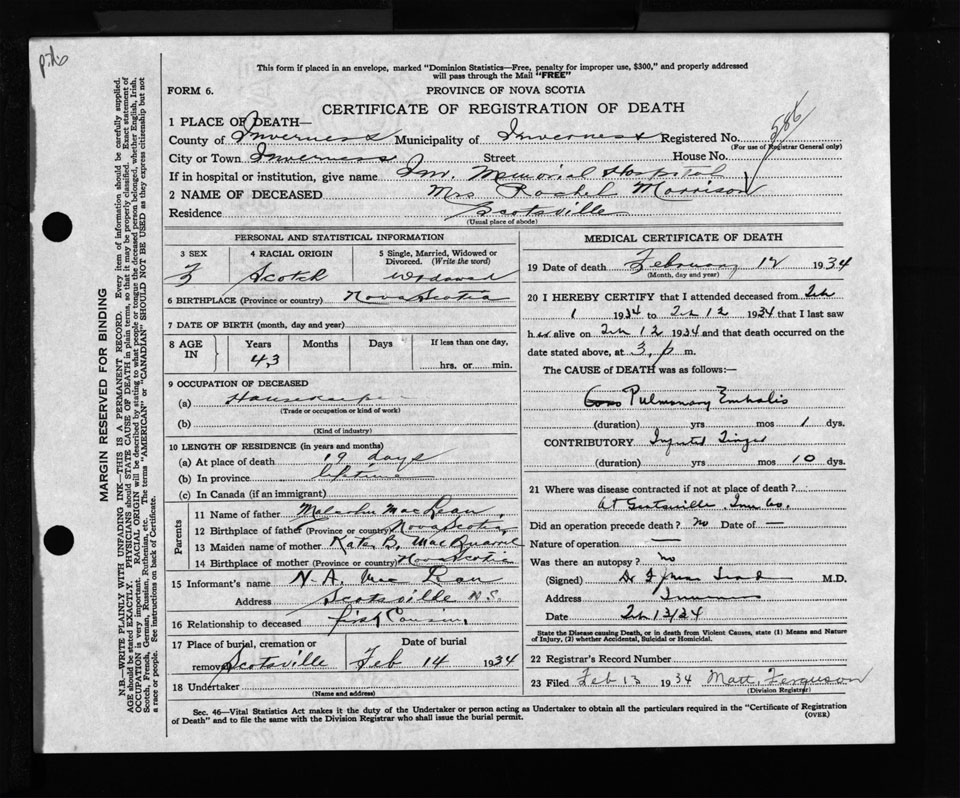 This form if placed in an envelope, marked "Dominion Statistics—Free, penalty for improper use, $300," and properly addressed
will pass through the Mail "FREE"
FORM 6.
PROVINCE OF NOVA SCOTIA
CERTIFICATE OF REGISTRATION OF DEATH
1 PLACE OF DEATH—
County of Inverness Municipality of Inverness Registered No. 586
(For use of Registrar General only)
City or Town Inverness Street House No.
If in hospital or institution, give name Inv. Memorial Hospital
2 NAME OF DECEASED Mrs Rachel Morrison
Residence Scotsville
(Usual place of abode)
PERSONAL AND STATISTICAL INFORMATION
3 SEX
F
4 RACIAL ORIGIN
Scotch
5 Single, Married, Widowed or
Divorced. (Write the word)
Widowed
6 BIRTHPLACE (Province or country) Nova Scotia
7 DATE OF BIRTH (month, day and year)
8 AGE
IN
Years
43
Months
Days
If less than one day,
hrs. or min.
9 OCCUPATION OF DECEASED
(a) Housekeeper
(Trade or occupation or kind of work)
(b)
(Kind of industry)
10 LENGTH OF RESIDENCE (in years and months)
(a) At place of death 19 days
(b) In province lifetime
(c) In Canada (if an immigrant)
Parents
11 Name of father Malcolm MacLean
12 Birthplace of father (Province or country) Nova Scotia
13 Maiden name of mother Kate B. MacQuarrie
14 Birthplace of mother (Province or country) Nova Scotia
15 Informant's name N. A. MacLean
Address Scotsville N.S.
16 Relationship to deceased first Cousin
17 Place of burial, cremation or
removal Scotsville
Date of burial
Feb 14 1934
18 Undertaker
(Name and address)
MEDICAL CERTIFICATE OF DEATH
19 Date of death February 12 1934
(Month, day and year)
20 I HEREBY CERTIFY that I attended deceased from Feb
1 1934 to Feb 12 1934 that I last saw
her alive on Feb 12 1934 and that death occurred on
date stated above, at 3 p m.
The CAUSE of DEATH was as follows:—
Pulmonary Embolis
(duration) yrs mos 1 dys.
CONTRIBUTORY Infected Finger
(duration) yrs mos 10 dys.
21 Where was disease contracted if not at place of death?
At Scotsville, Inv Co.
Did an operation precede death? no Date of —
Nature of operation —
Was there an autopsy? no
(Signed) Dr M.D.
Address
Date Feb 13/34
State the Disease causing Death, or in death from Violent Causes, state (1) Means and Nature
of Injury, (2) whether Accidental, Suicidal or Homicidal.
22 Registrar's Record Number
23 Filed Feb 13 1934 Matt. Ferguson
(Division Registrar)
Sec. 46—Vital Statistics Act makes it the duty of the Undertaker or person acting as Undertaker to obtain all the particulars required in the "Certificate of Registration
of Death" and to file the same with the Division Registrar who shall issue the burial permit.
(OVER)
MARGIN RESERVED FOR BINDING
N.B.—WRITE PLAINLY WITH UNFADING INK—THIS IS A PERMANENT RECORD. Every item of information should be carefully supplied.
AGE should be stated EXACTLY. PHYSICIANS should STATE CAUSE OF DEATH in plain terms, so that it may be properly classified. Exact statement of
OCCUPATION is very important. RACIAL ORIGIN will be described by stating to what people or tongue the deceased person belonged, whether English, Irish,
Scotch, French, German, Russian, Ruthenian, etc. The terms "AMERICAN" or "CANADIAN" SHOULD NOT BE USED as they express citizenship but not
a race or people. See instructions on back of Certificate.